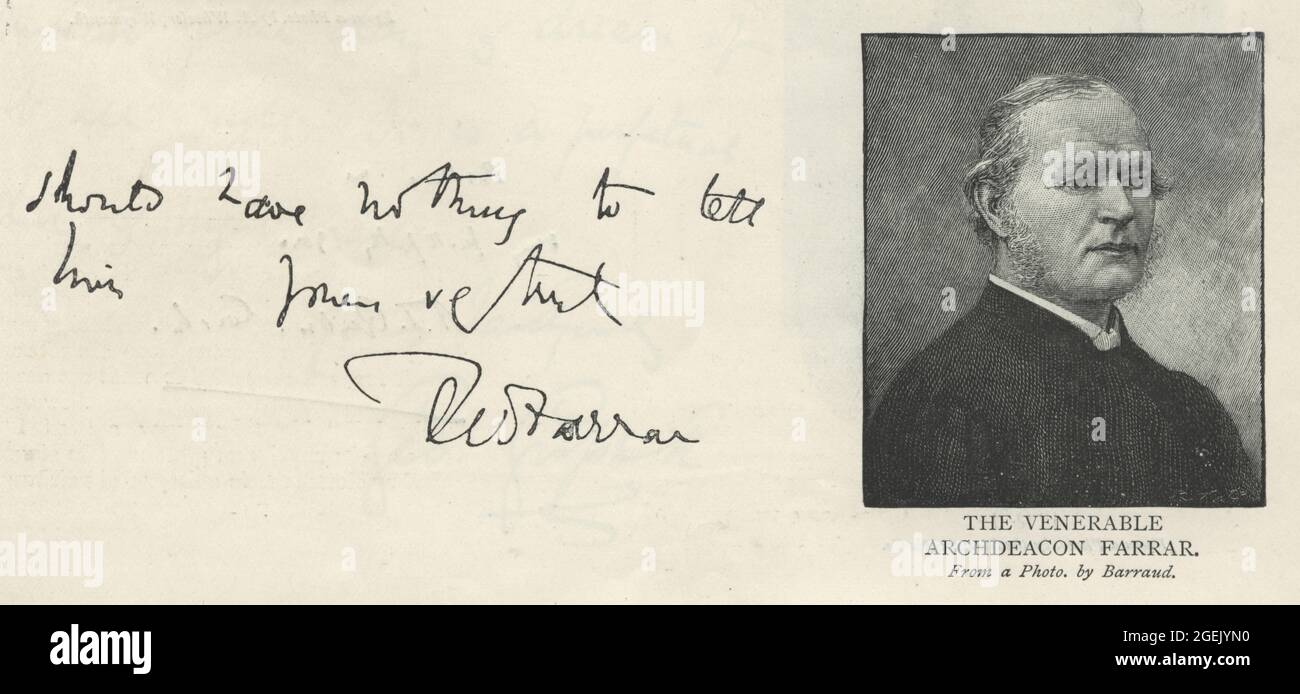 should have nothing to tell
him Yours very truly
F W Farrar
THE VENERABLE
ARCHDEACON FARRAR.
From a Photo. by Barraud.
alamy
Image ID: 2GEJYN0
www.alamy.com